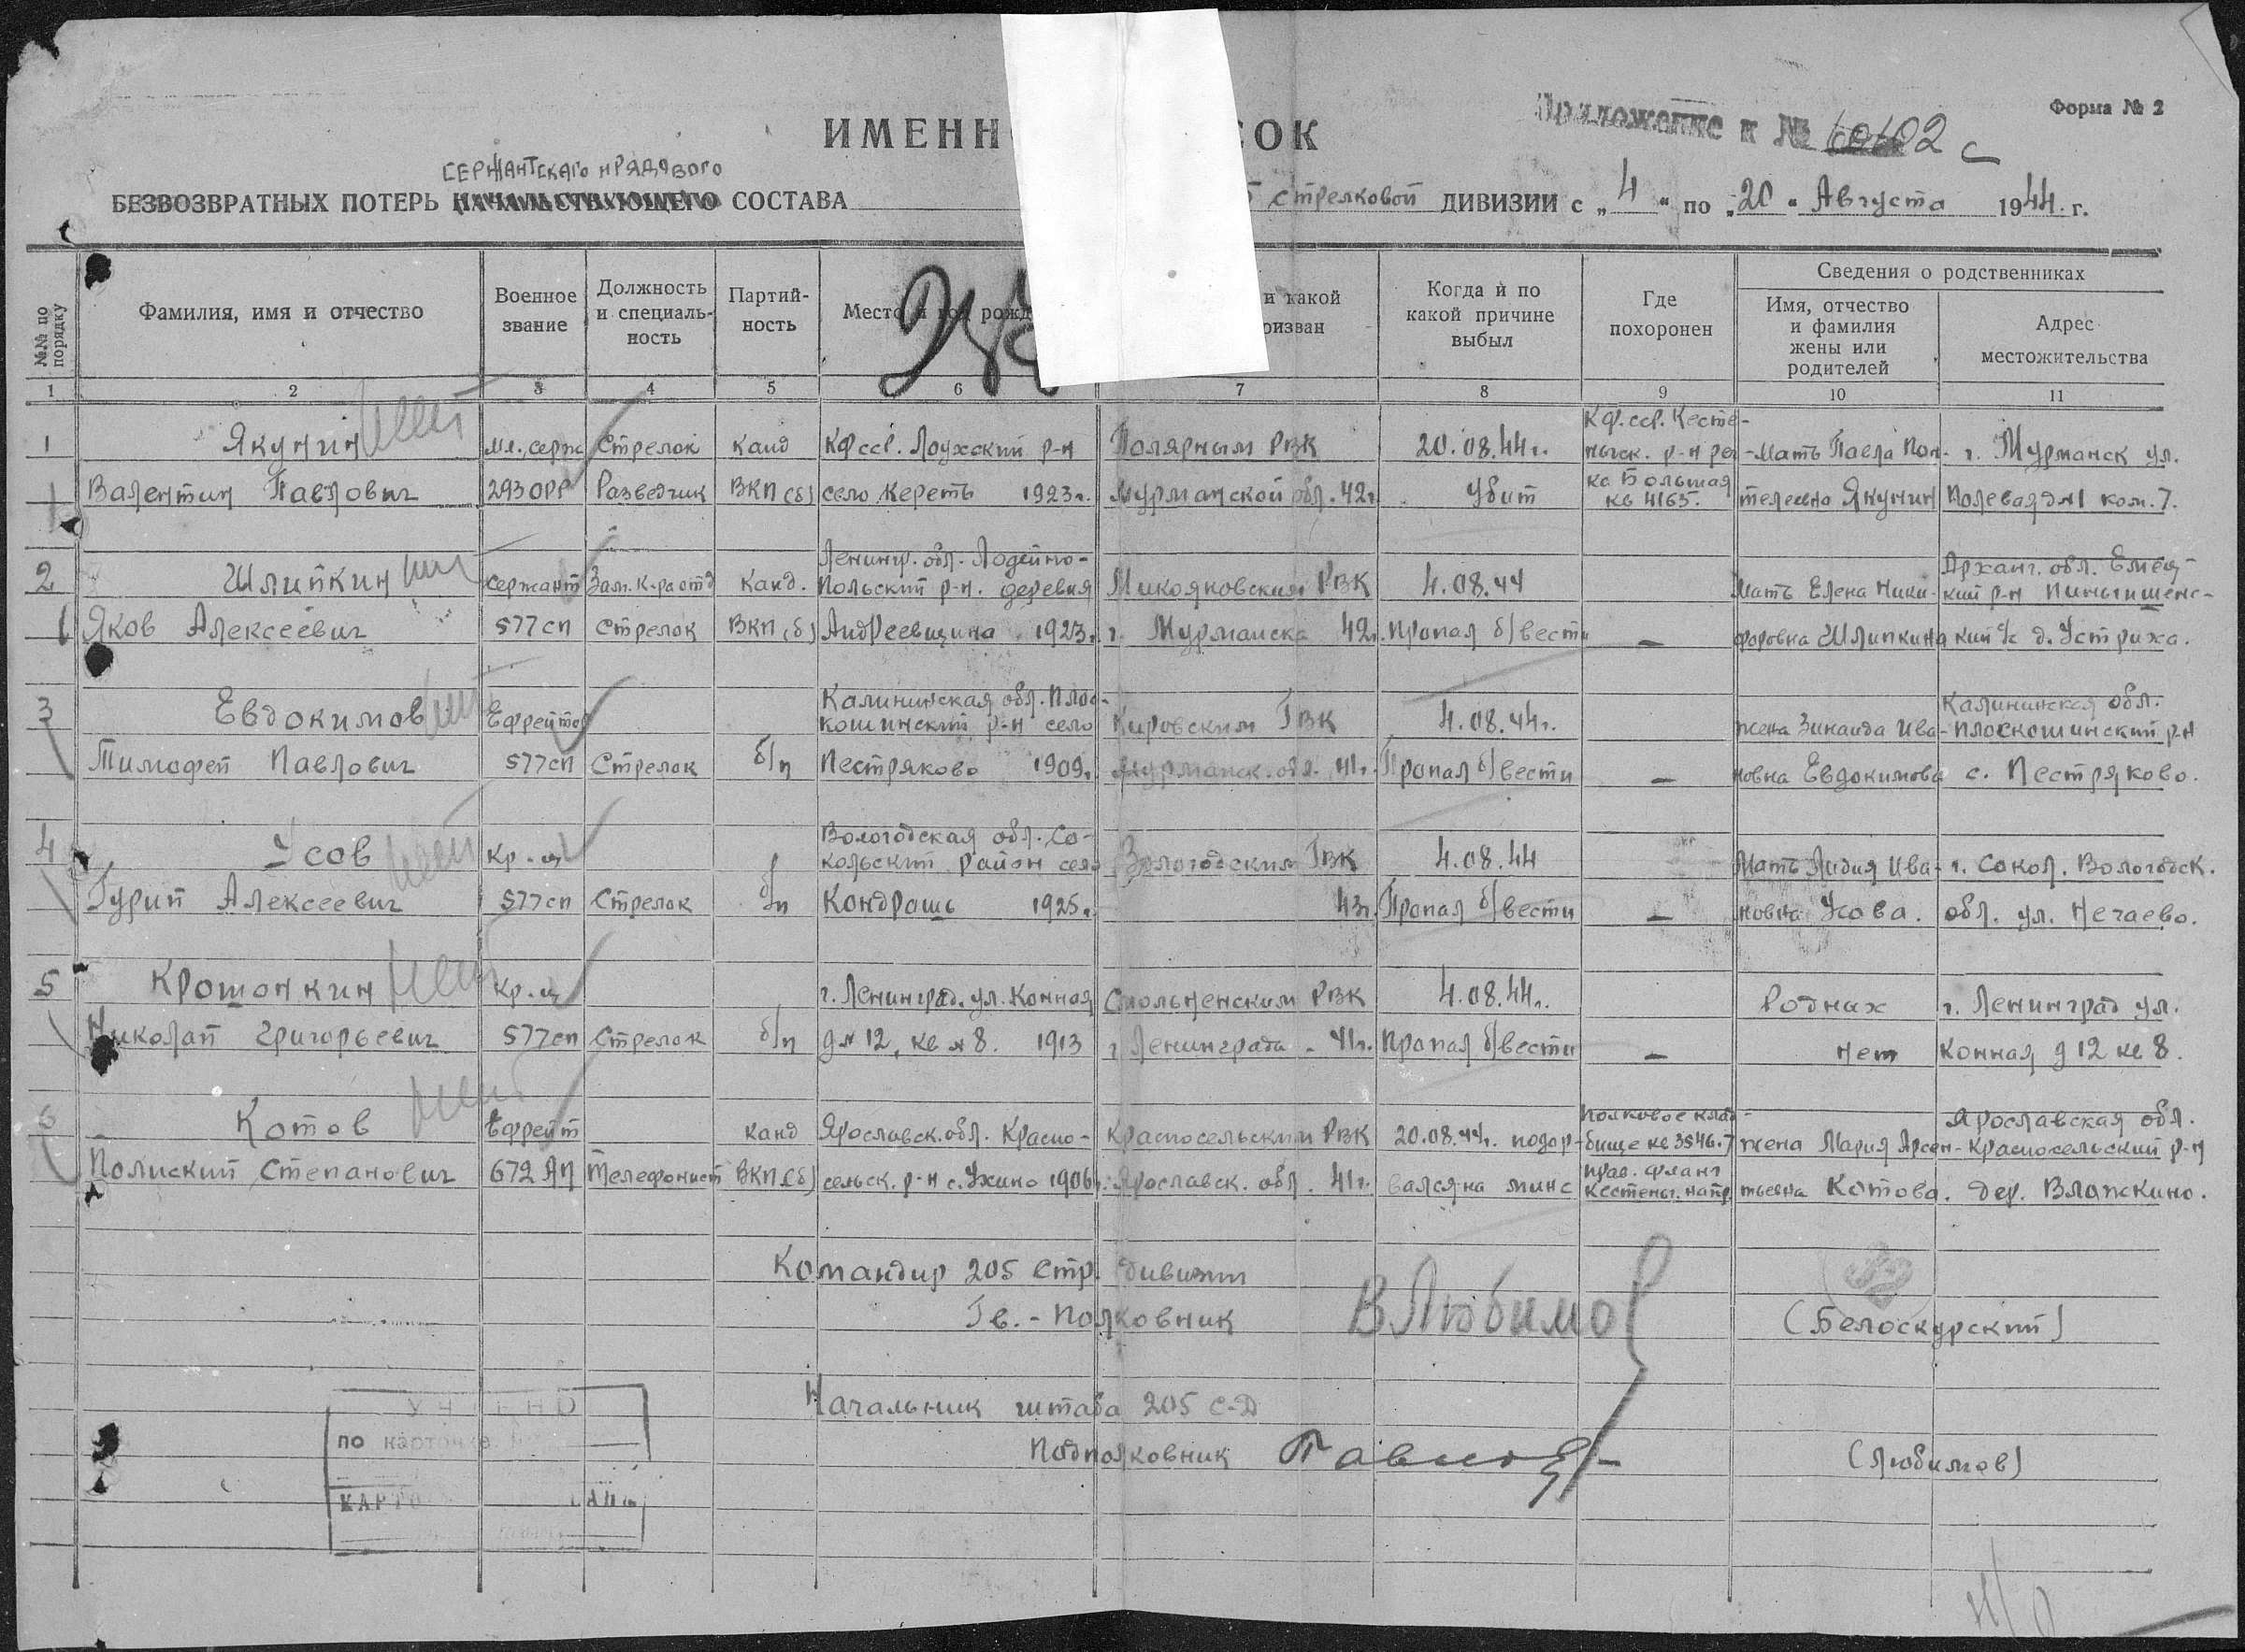 Форма № 2
Приложение к № с
ИМЕНН СОК
СЕРЖАНТСКАГО И РЯДОВОГО
БЕЗВОЗВРАТНЫХ ПОТЕРЬ НАЧАЛЬСТВУЮЩЕГО СОСТАВА 5 стрелковой ДИВИЗИИ с „4“ по „20“ Августа 1944 г.
№№ по порядку
Фамилия, имя и отчество
Военное звание
Должность и специаль-
ность
Партий-
ность
Место и год рожд
и какой
ризван
Когда и по
какой причине
выбыл
Где
похоронен
Сведения о родственниках
Имя, отчество
и фамилия
жены или
родителей
Адрес
местожительства
1 2 3 4 5 6 7 8 9 10 11
Кф. сср. Кесте-
1 Якунин мл. серж Стрелок канд Кф сср. Лоухский р-н Полярным РВК 20.08.44 г. ньгск. р-н ре- мать Павла Пан- г. Мурманск ул.
Валентин Павлович 293 ОРР Разведчик ВКП(б) село Кереть 1923 г. Мурманской обл. 42 г. Убит ка Большая кв 4165. телеевна Якунин Полевая д №1 ком. 7.
Ленингр. обл. Лодейно- Арханг. обл. Емец-
2 Шлипкин сержант Зам. К-ра отд Канд. Польский р-н. деревня Микояновским РВК 4.08.44 Мать Елена Ники- кий р-н
Яков Алексеевич 577 сп стрелок ВКП(б) Андреевщина 1923 г. г. Мурманска 42 г. Пропал б/вести — форовна Шлипкина кий с/с д. Устриха.
Калининская обл. Плос- Калининская обл.
3 Евдокимов Ефрейтор кошинский р-н село Кировским ГВК 4.08.44 г. жена Зинаида Ива- Плоскошинский р-н
Тимофей Павлович 577 сп Стрелок б/п Пестряково 1909 г. Мурманск. обл. 41 г. Пропал б/вести — новна Евдокимова с. Пестряково.
Вологодская обл. Со-
4 Усов Кр-ц кольский район село Вологодским ГВК 4.08.44 Мать Лидия Ива- г. Сокол. Вологодск.
Гурий Алексеевич 577 сп Стрелок б/п Кондрашь 1925 г. 43 г. Пропал б/вести — новна Усова. обл. ул. Нечаево.
5 Крошонкин Кр-ц г. Ленинград. ул. Конная Смольненским РВК 4.08.44 г. Родных г. Ленинград ул.
Николай Григорьевич 577 сп Стрелок б/п д № 12, кв № 8. 1913 г. Ленинграда. 41 г. Пропал б/вести — нет Конная д 12 кв 8.
Полковое клад- Ярославская обл.
6 Котов Ефрейт канд Ярославск. обл. Красно- Красносельским РВК 20.08.44 г. подор- бище кв 3546.7 жена Мария Арсен- Красносельский р-н
Полиский Степанович 672 АП Телефонист ВКП(б) сельск. р-н с. Ухино 1906 г. Ярославск. обл. 41 г. вался на мине прав. фланг Кестеньг. напр. тьевна Котова. Дер. Влажкино.
Командир 205 Стр. дивизии
Гв. - Полковник В Любимов (Белоскурский)
Начальник штаба 205 С-Д
Подполковник (Любимов)
по карточке
КАРТО